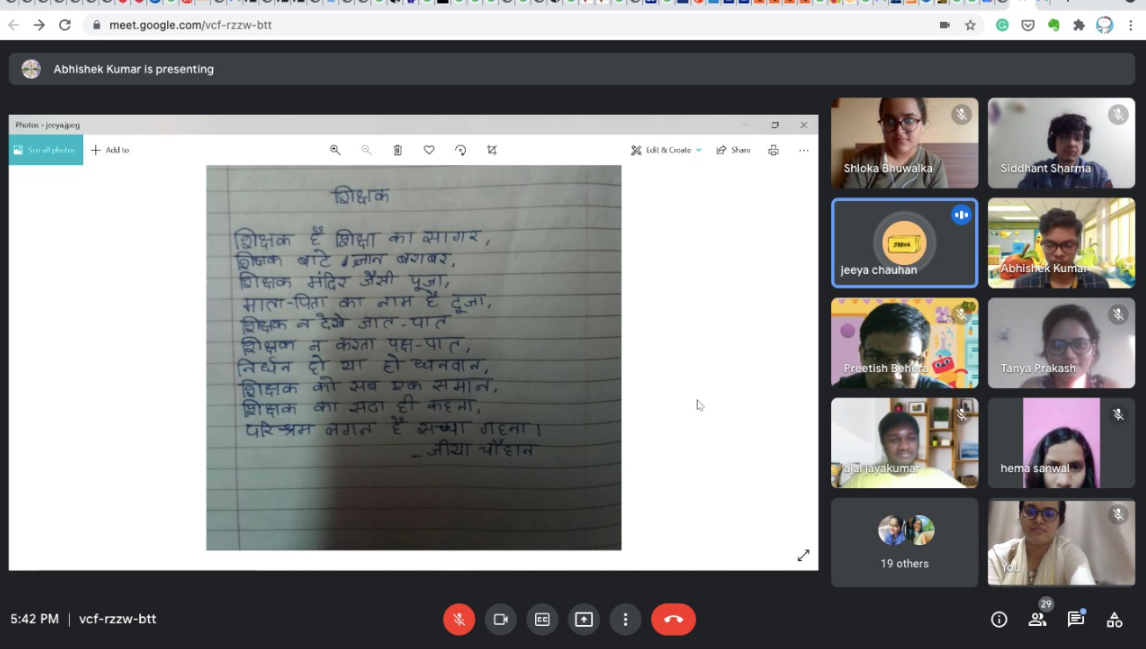 meet.google.com/vcf-rzzw-btt
Abhishek Kumar is presenting
Photos - jeeya.jpeg
See all photos
Add to
Edit & Create
Share
शिक्षक
शिक्षक है शिक्षा का सागर,
शिक्षक बाटे ज्ञान बराबर,
शिक्षक मंदिर जैसी पूजा,
माता-पिता का नाम है दूजा,
शिक्षक न देखे जात-पात
शिक्षक न करता पक्ष-पात,
निर्धन हो या हो ध्नवान,
शिक्षक को सब एक समान,
शिक्षक का सदा ही कहना,
परिश्रम लगत है सच्चा गहना।
- जीया चौहान
Shloka Bhuwalka
Siddhant Sharma
JEEYA
jeeya chauhan
Abhishek Kumar
Preetish Behera
Tanya Prakash
ajai jayakumar
hema sanwal
19 others
You
5:42 PM | vcf-rzzw-btt
29